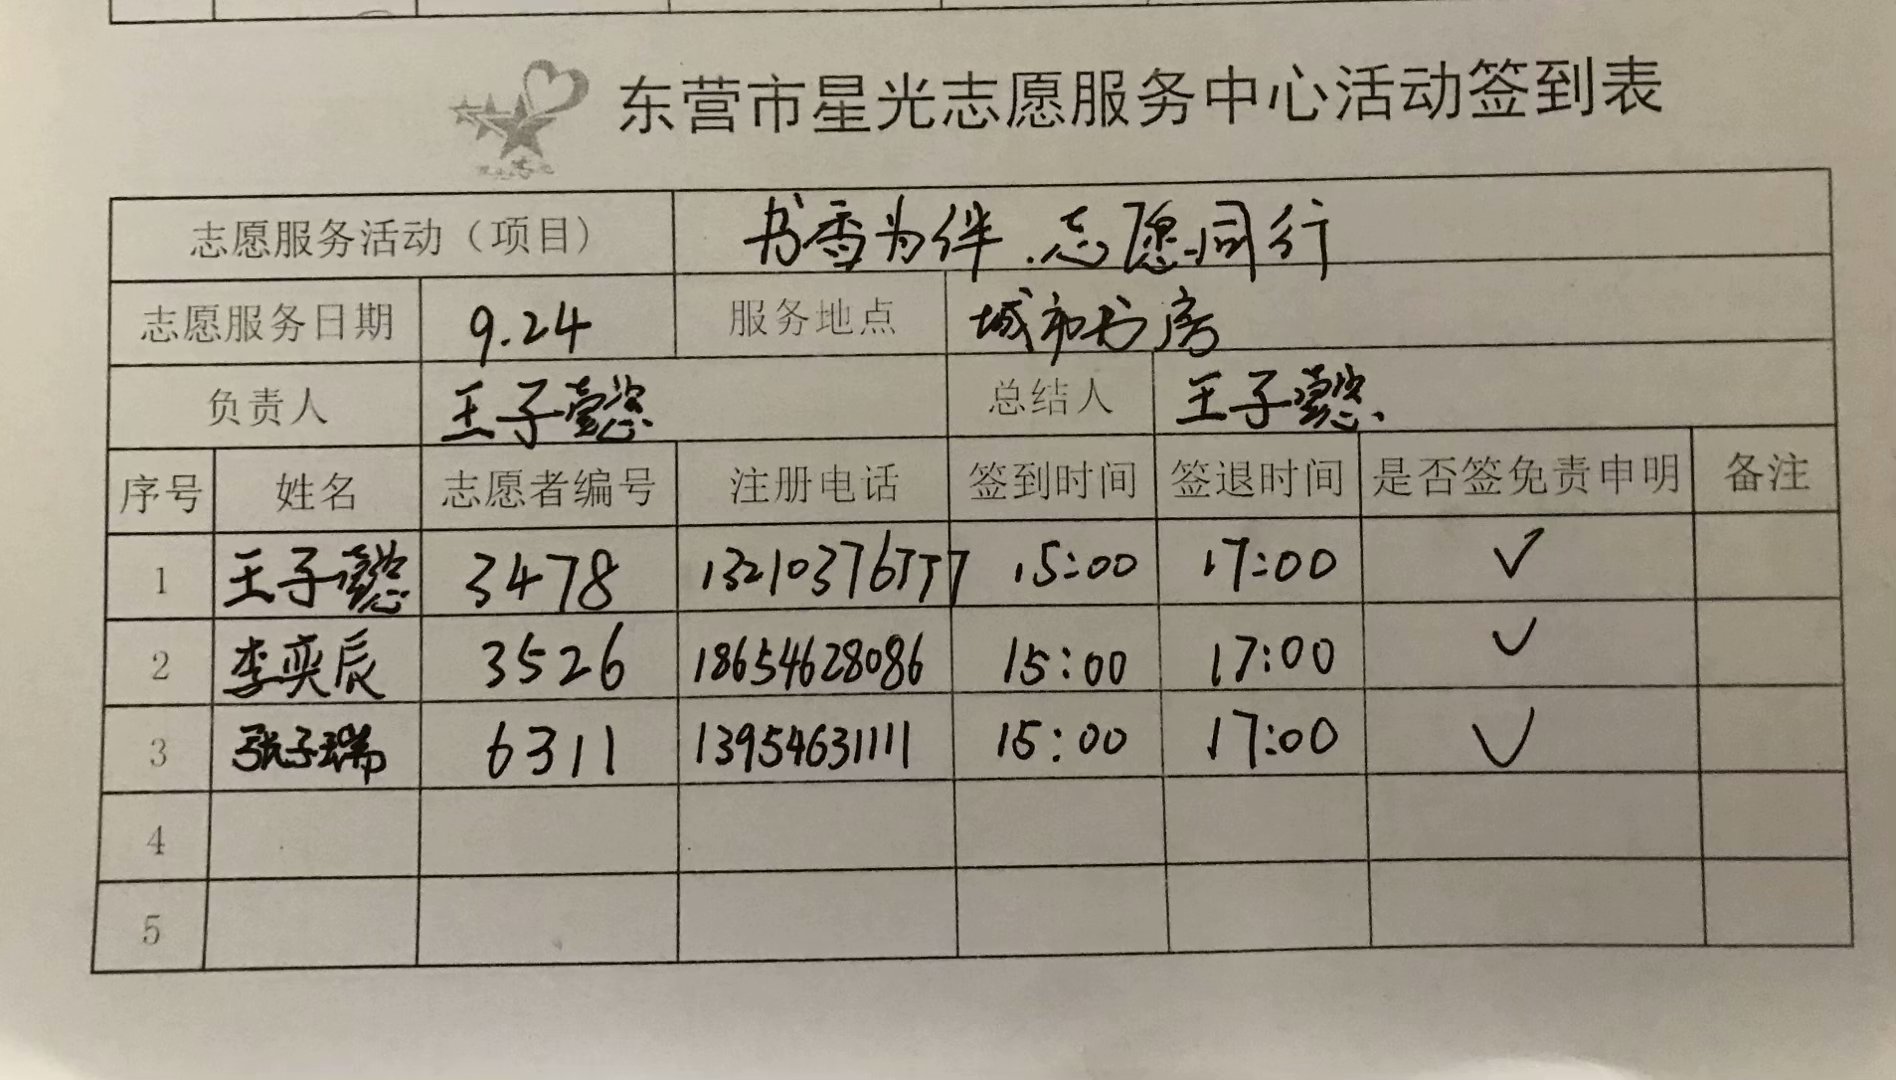 东营市星光志愿服务中心活动签到表
志愿服务活动（项目） 书香为伴.志愿同行
志愿服务日期 9.24 服务地点 城市书房
负责人 王子懿 总结人 王子懿
序号 姓名 志愿者编号 注册电话 签到时间 签退时间 是否签免责申明 备注
1 王子懿 3478 15:00 17:00 ✓
2 李奕辰 3526 18654628086 15:00 17:00 ✓
3 张子瑞 6311 13954631111 15:00 17:00 ✓
4
5